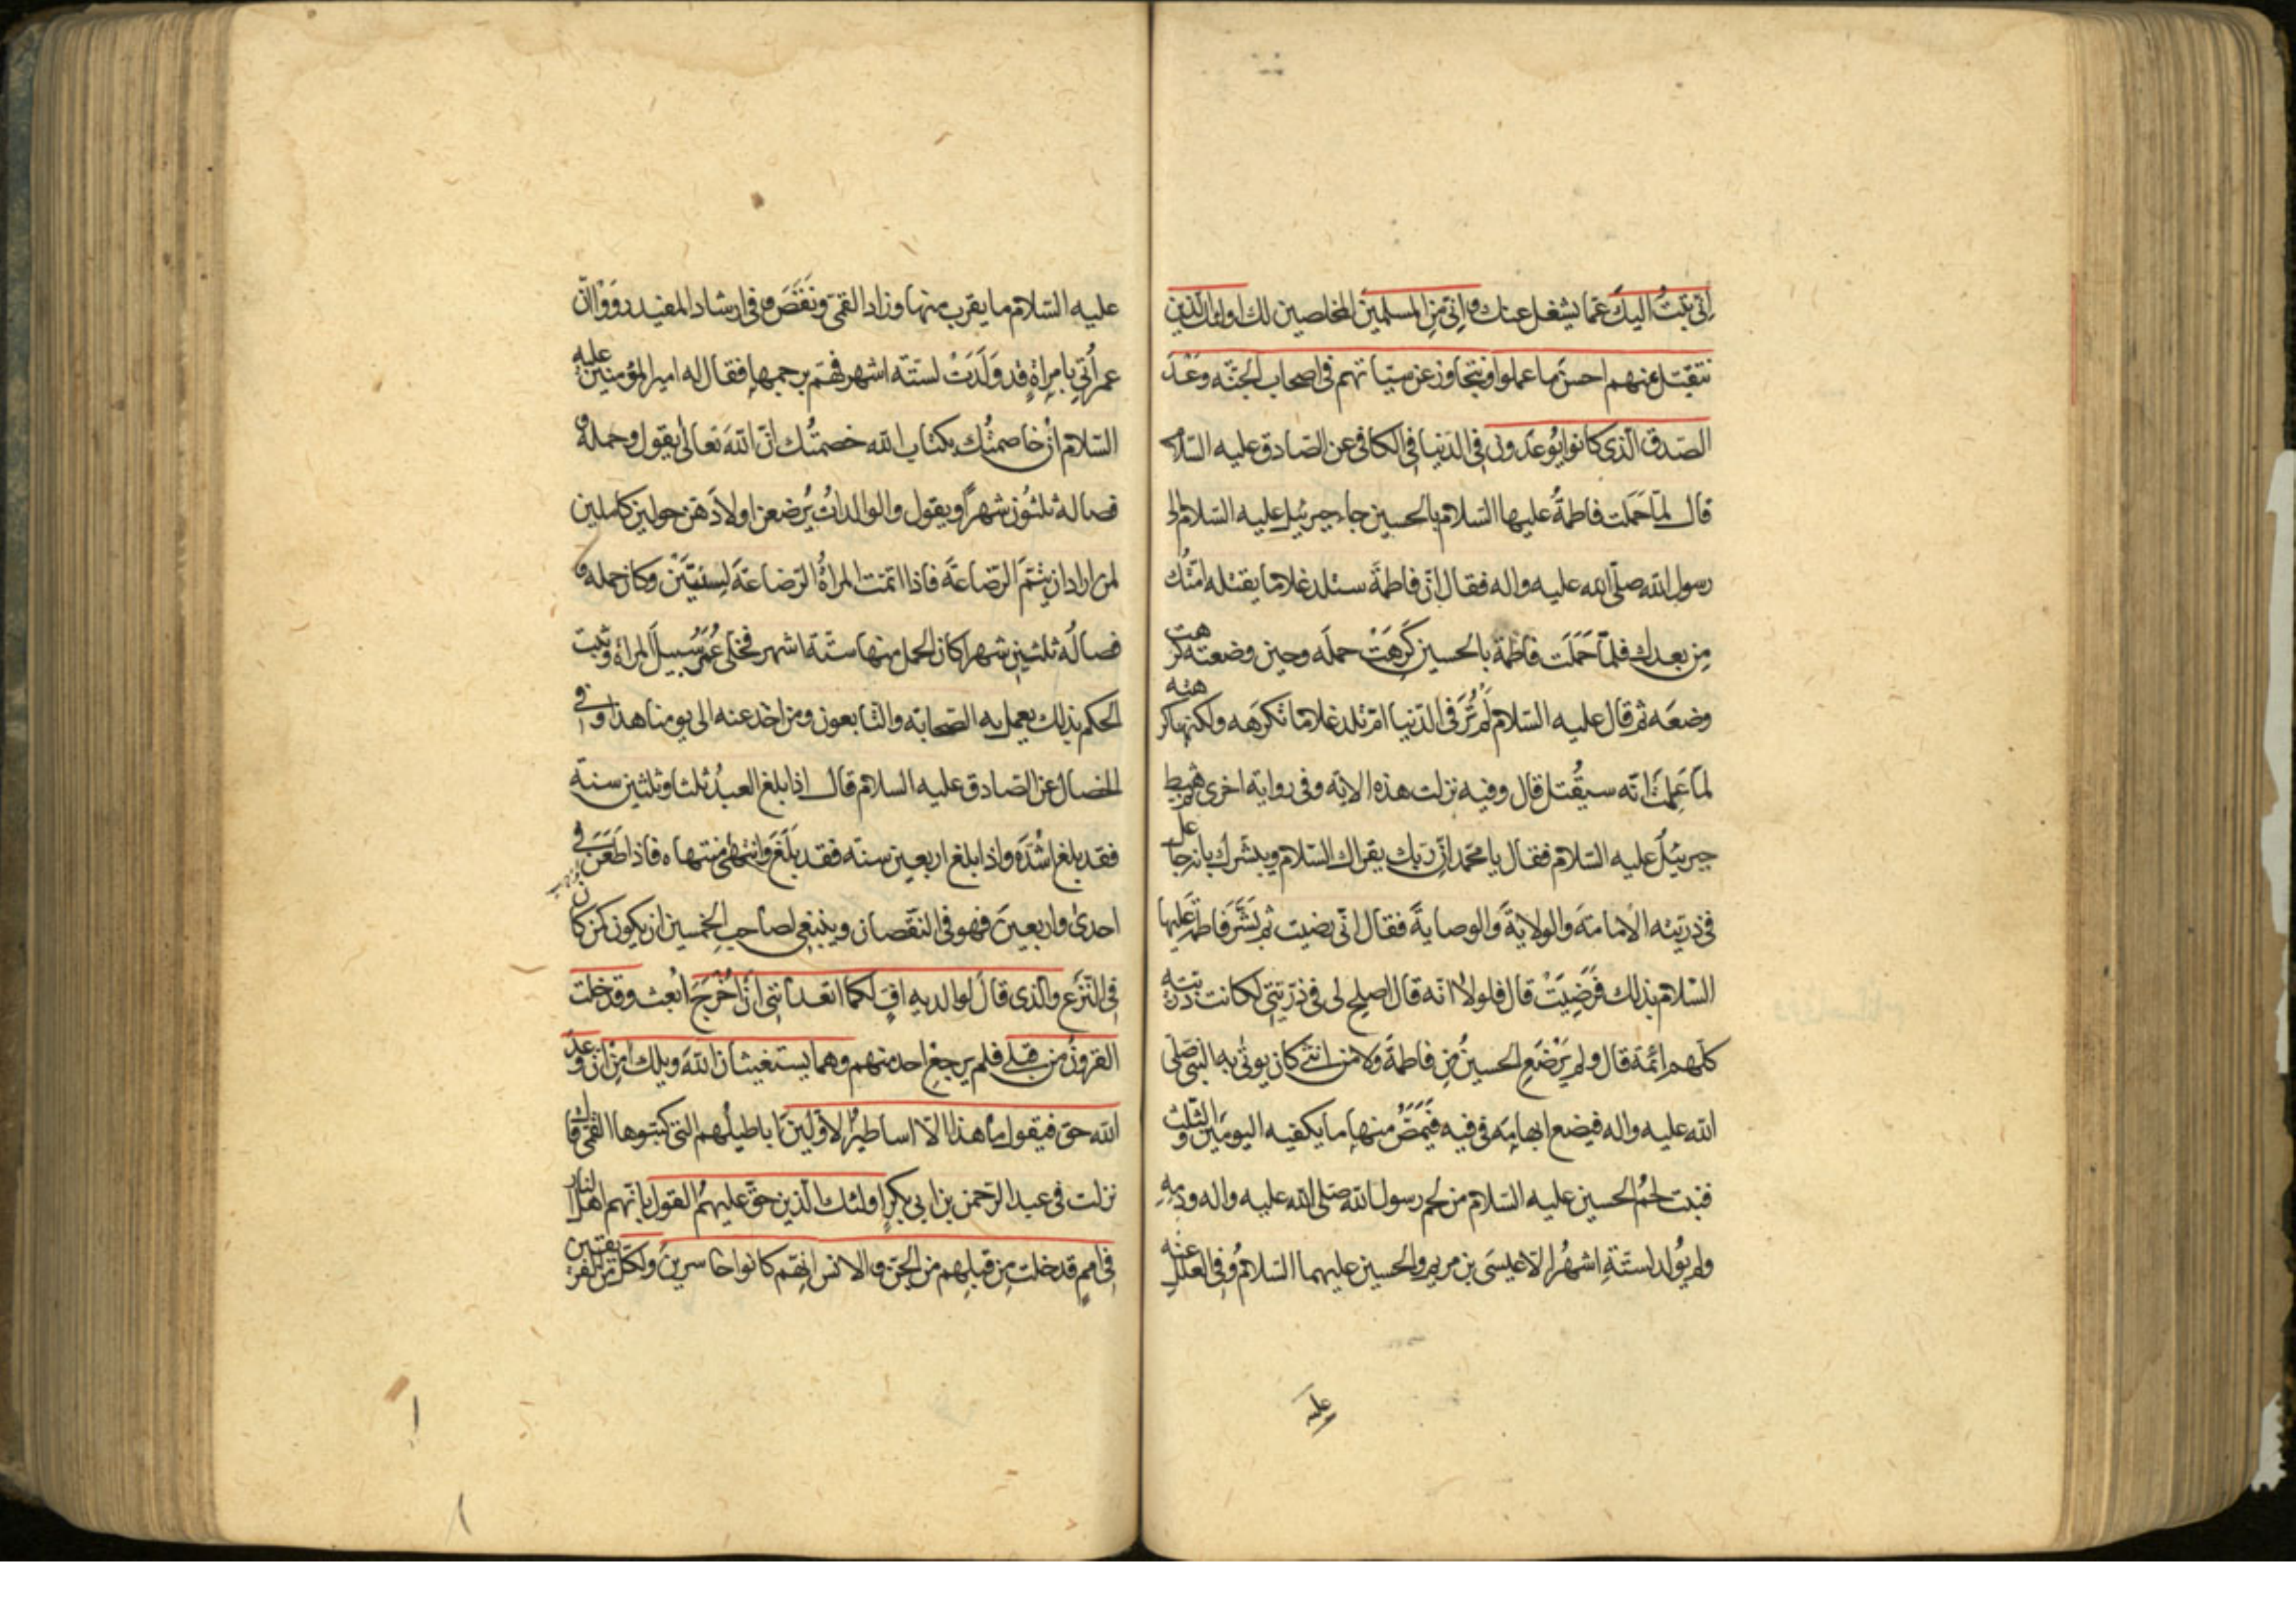 اِنّى تبتُ اليكَ عمّا يشغل عنك واِنّى مِن المسلمين المخلصين لك اولئك الّذين
نتقبّل عنهم احسنَ ما عملوا ونتجاوز عن سيّاتهم فى اصحاب الجنّه وَعْدَ
الصّدق الّذى كانوا يُوعَدون فى الدّنيا فى الكافى عن الصّادق عليه السّلام
قال لمّا حَمَلت فاطمةُ عليها السّلام بالحسين جاء جبرئيل عليه السّلام الى
رسول الله صلّى الله عليه واله فقال انّ فاطمةَ ستلد غلاما يقتله امّتُك
مِن بعدك فلمّا حَمَلَت فاطمة بالحسين كَرِهَتْ حمله وحين وضعته كرهت
وضعَه ثم قال عليه السّلام لَم تُرَ فى الدّنيا امّ تلد غلاما تكرَهه ولكنها كرهته
لمّا عَلِمَتْ انّه سيُقتل قال وفيه نزلت هذه الاية وفى رواية اخرى ثم هبط
جبرئيلُ عليه السّلام فقال يا محمّد انّ ربّك يقراك السّلام ويبشّرك بانه جاعل
فى ذريّته الامامةَ والولايةَ والوصايةَ فقال انّى رضيت ثم بَشَّرَ فاطمةَ عليها
السّلام بذلك فَرَضِيَتْ قال فلولا انّه قال اصلح لى فى ذرّيّتى لكانت ذريّته
كلّهم ائمّة قال ولم يَرْضَعِ الحسينُ مِن فاطمةَ ولا من انثى كان يوتى به النبى صلّى
الله عليه واله فيضع ابهامَه فى فيه فيَمَصُّ منها ما يكفيه اليومَين والثّلث
فنبت لحمُ الحسين عليه السّلام من لحم رسول الله صلّى الله عليه واله ودمِه
ولم يُولد لستّةِ اشهُر الّا عيسَى بن مريم والحسين عليهما السّلامُ وفى العلل عنه
عليه
عليه السّلام ما يقرب منها وزاد القمّى ونَقَصَ وفى ارشاد المفيد رَوَوْا انّ
عمر اُتِىَ بامراةٍ قد وَلَدَتْ لستّة اشهر فهمّ برجمها فقال له امير المؤمنين عليه
السّلام ان خاصمتُك بكتاب الله خصمتُك انّ اللهَ تعالى يقول وحمله و
فصاله ثلثون شهراً ويقول والوالداتُ يُرضعن اولادَهنّ حولين كاملين
لمن اراد ان يتمّ الرّضاعةَ فاذا اتمّت المراةُ الرّضاعةَ لسنتَيْن وكان حمله و
فصالُه ثلثين شهرا كان الحمل منها ستّة اشهر فخلى عُمَرُ سبيلَ المراة وثبت
الحكم بذلك يعمل به الصّحابة والتّابعون ومن اخذ عنه الى يومنا هذا وفى
الخصال عن الصّادق عليه السلام قال اذا بلغ العبدُ ثلثا وثلثين سنة
فقد بلغ اشُدَّه واذا بلغ اربعين سنة فقد بَلَغَ وانتهى منتهاه فاذا طَعَنَ فى
احدى واربعينَ فهو فى النّقصان وينبغى لصاحب الخمسين ان يكون كمن كان
فى النّزع والّذى قالَ لوالديه اُفٍّ لكما اتعداننى اَن اُخْرَجَ ابُعث وقد خلت
القرونُ من قبلى فلم يرجع احد منهم وهما يستغيثان اللهَ ويلك امِن انّ وعدَ
الله حق فيقول ما هذا الّا اساطيرُ الاوّلين اباطيلُهم التى كتبوها القمّى قال
نزلت فى عبد الرّحمن بن ابى بكرٍ اولئك الّذين حقّ عليهمُ القول بانّهم اهل النار
فى اممٍ قد خلت مِن قبلِهم من الجنّ والانس انهّم كانوا خاسرينَ ولكلّ من الفريقين